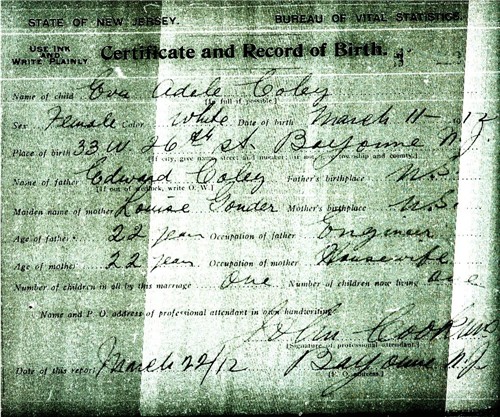 STATE OF NEW JERSEY. BUREAU OF VITAL STATISTICS.
USE INK AND WRITE PLAINLY Certificate and Record of Birth.
Name of child Eva Adele Coley
[In full if possible.]
Sex Female Color White Date of birth March 11 - 1912
Place of birth 33 W 26th St. Bayonne N.J.
[If city, give name, street and number; if not, give township and county.]
Name of father Edward Coley Father's birthplace U.S.
[If out of wedlock, write O. W.]
Maiden name of mother Louise Gonder Mother's birthplace U.S.
Age of father 22 years Occupation of father Engineer
Age of mother 22 years Occupation of mother Housewife
Number of children in all by this marriage One Number of children now living One
Name and P. O. address of professional attendant in own handwriting
John Cook
[Signature of professional attendant.]
Date of this report March 22/12 Bayonne N.J.
[P. O. address.]